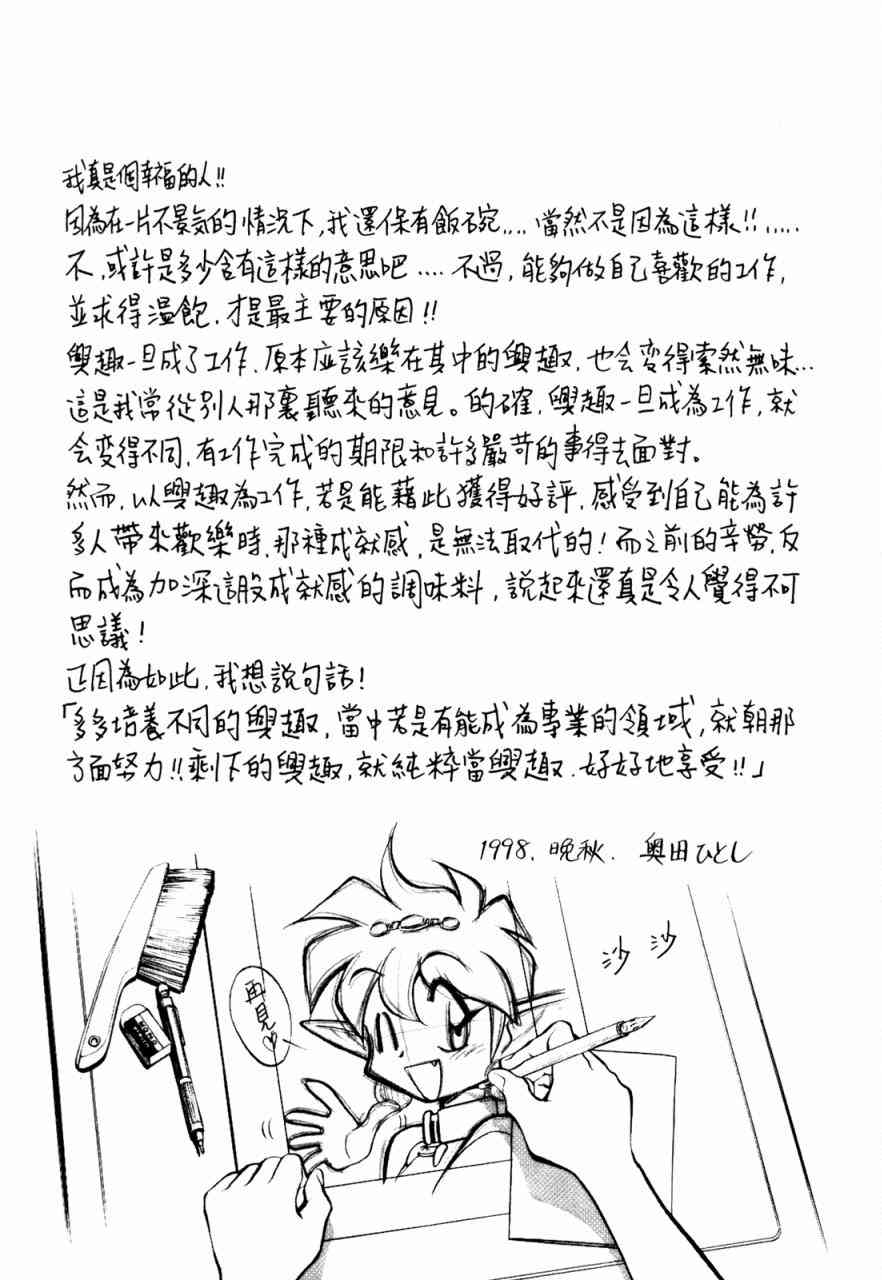 我真是個幸福的人!!
因為在一片不景気的情況下,我還保有飯碗.... 當然不是因為這樣!!.....
不,或許是多少含有這樣的意思吧.... 不過,能夠做自己喜歡的工作,
並求得溫飽,才是最主要的原因!!
興趣一旦成了工作,原本应該樂在其中的興趣,也会変得索然無味...
這是我常從別人那裏聽來的意見。的確,興趣一旦成為工作,就
会変得不同,有工作完成的期限和許多嚴苛的事得去面對。
然而,以興趣為工作,若是能藉此獲得好評,感受到自己能為許
多人帶來歡樂時,那種成就感,是無法取代的!而之前的辛勞,反
而成為加深這股成就感的調味料,說起來還真是令人覺得不可
思議!
正因為如此,我想說句話!
「多多培養不同的興趣,當中若是有能成為專業的領域,就朝那
方面努力!!剩下的興趣,就純粹當興趣.好好地享受!!」
1998. 晚秋. 奧田ひとし
沙沙
再見♡